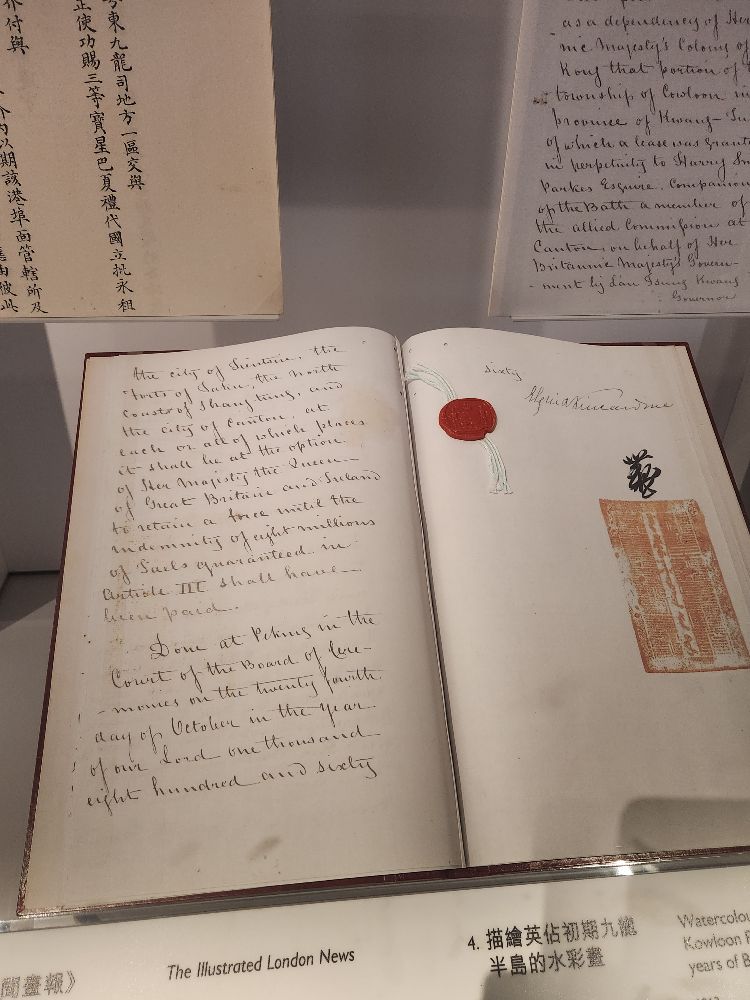 東九龍司地方一區交與
正使功賜三等寶星巴夏禮代國立批永租
付與
內以期該港埠面管轄所及
as a dependency of Her
-nic Majesty's Colony of
Kong that portion of
township of Cowloon in
province of Kwang-Tu
of which a lease was grant
in perpetuity to Harry
Parkes Esquire, Companion
of the Bath a member of
the allied Commission at
Canton, on behalf of Her
Britannic Majesty's Govern-
-ment by Lan Tsung Kwang
Governor
the city of Tientsin, the
Forts of Taku, the north
Coast of Shangtung, and
the city of Canton, at
each or all of which places
it shall be at the option
of Her Majesty the Queen
of Great Britain and Ireland
to retain a force until the
indemnity of eight millions
of Taels guaranteed in
Article III shall have
been paid.
Done at Peking in the
Court of the Board of Cere-
-monies on the twenty fourth
day of October in the Year
of our Lord one thousand
eight hundred and sixty
sixty
Elgin & Kincardine
聞畫報》
The Illustrated London News
4. 描繪英佔初期九龍
半島的水彩畫
Watercolou
Kowloon P
years of B